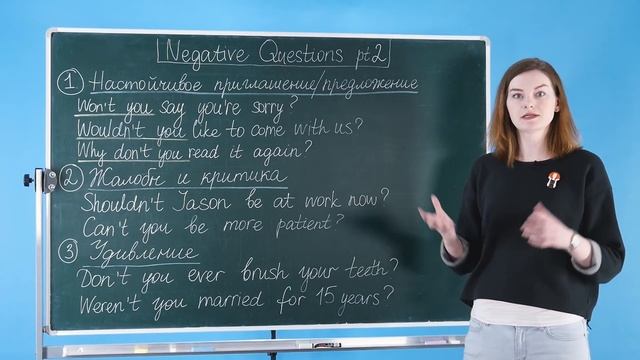 Negative Questions pt 2
1 Настойчивое приглашение/предложение
Won't you say you're sorry?
Wouldn't you like to come with us?
Why don't you read it again?
2 Жалобы и критика
Shouldn't Jason be at work now?
Can't you be more patient?
3 Удивление
Don't you ever brush your teeth?
Weren't you married for 15 years?